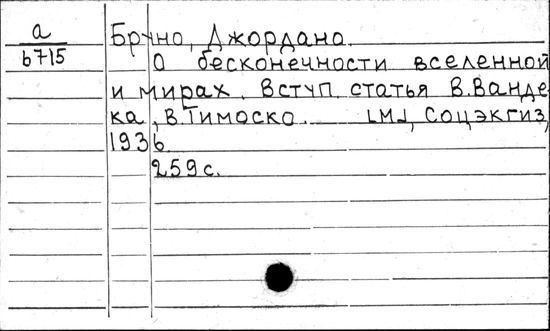 а
б715
Бруно, Джордано.
О бесконечности вселенной
и мирах. Вступ. статья В.Ванде-
ка, В.Тимоско. [М], Соцэкгиз,
1936.
259с.